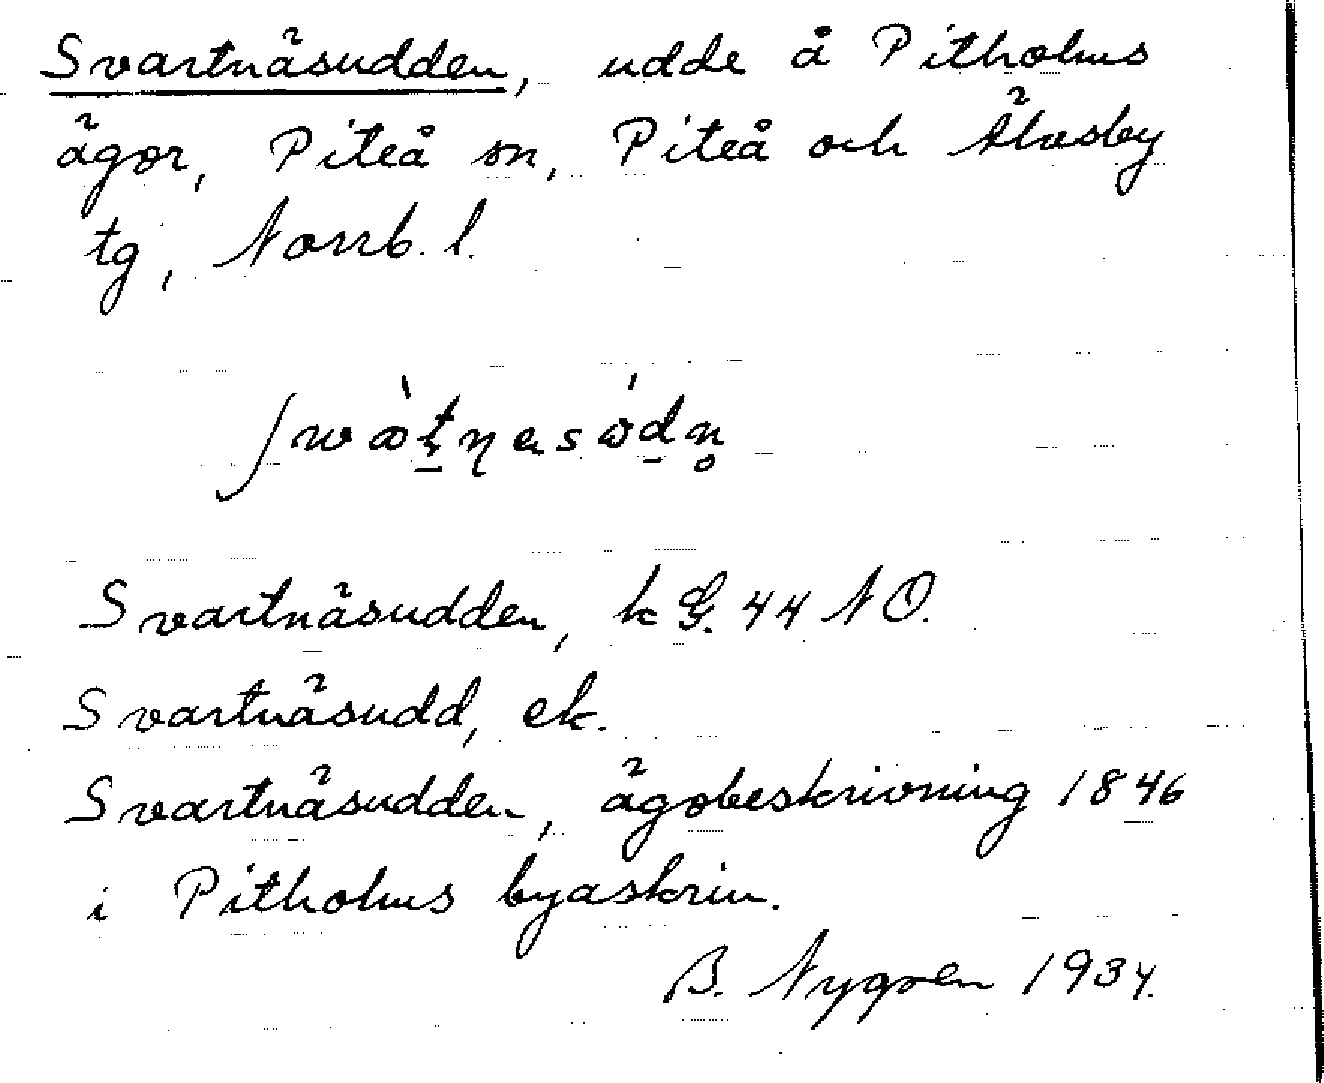 Svartnäsudden, udde å Pitholms
ägor, Piteå sn, Piteå och Älvsby
tg, Norrb. l.
Svartnäsudden, k G. 44 NO.
Svartnäsudd, ek.
Svartnäsudden, ägobeskrivning 1846
i Pitholms byaskrin.
B. Nygren 1934.